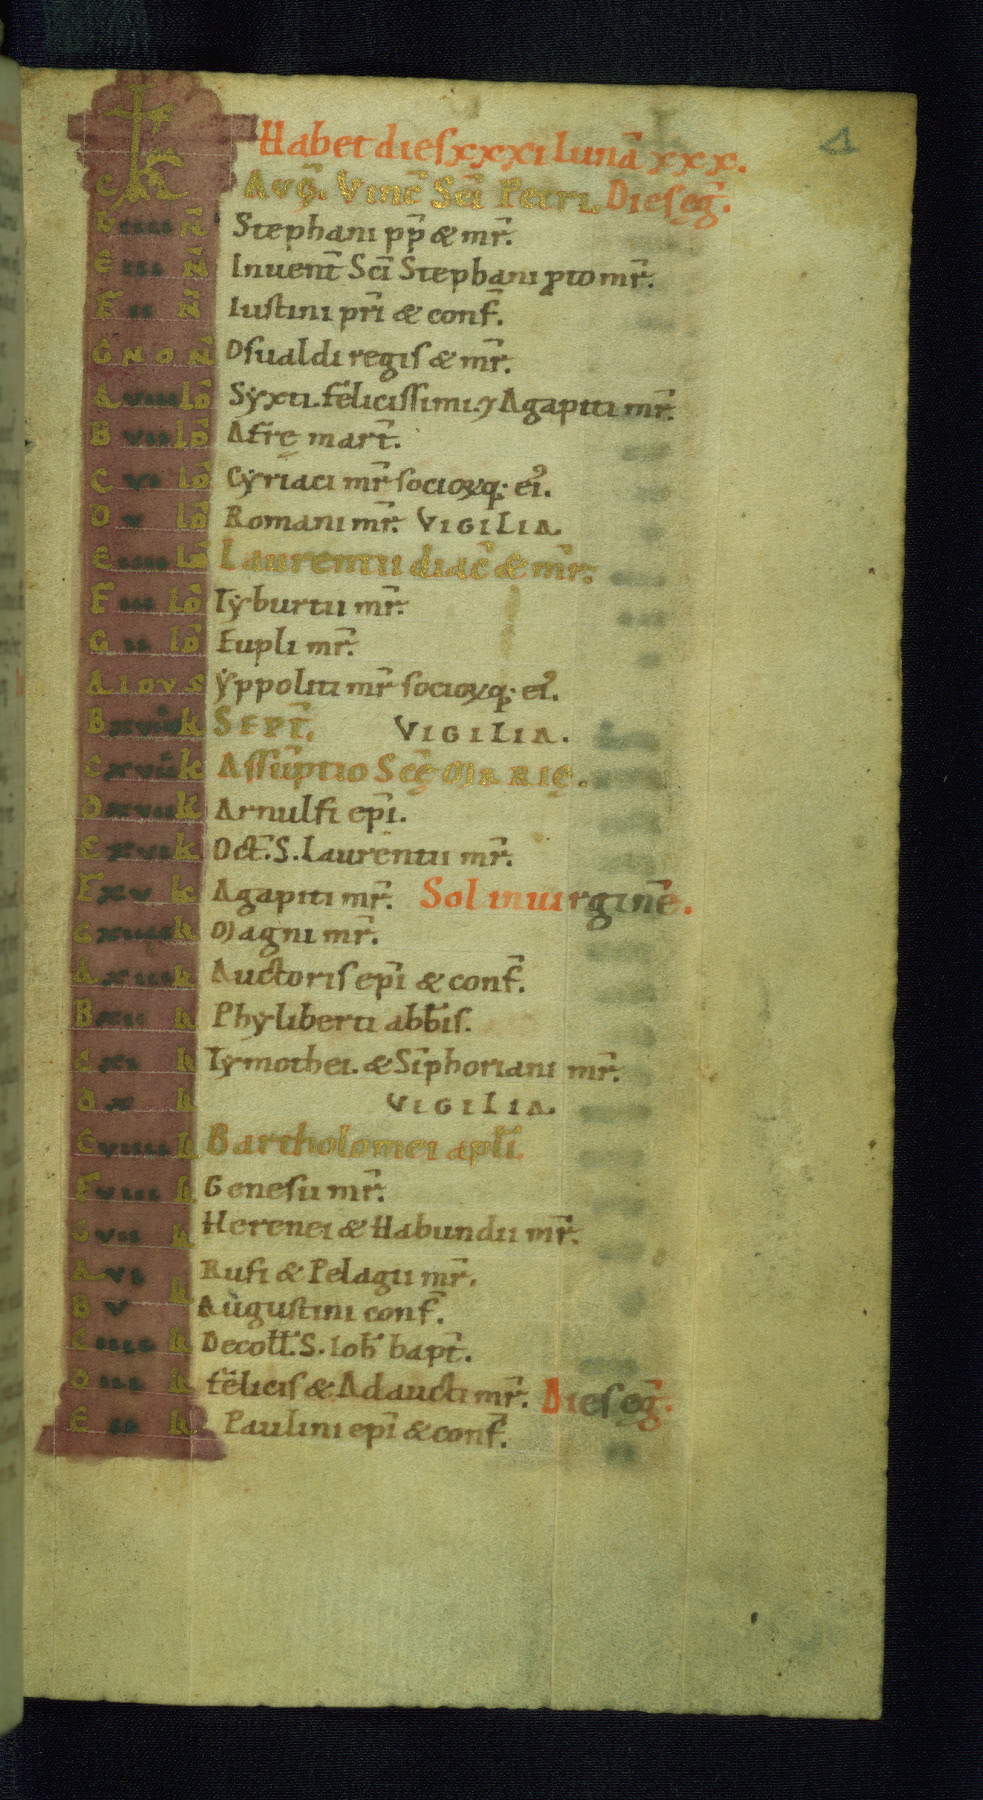 Habet dies xxxi lunā xxx.
C KL AVḠ. Vinc̄ Sc̄i Petri. Dies eḡ.
D iiii N̄ Stephani pp̄ & mr̄.
E iii N̄ Inuent̄ Sc̄i Stephani ꝓtomr̄.
F ii N̄ Iustini pr̄i & conf̄.
G NON̄ Osualdi regis & mr̄.
A viii Id̄ Syxti. felicissimi. ⁊ Agapiti mr̄.
B vii Id̄ Afrę mart̄.
C vi Id̄ Cyriaci mr̄ socioꝝq; ei᾽.
D v Id̄ Romani mr̄. VIGILIA.
E iiii Id̄ Laurentii diac̄ & mr̄.
F iii Id̄ Tyburtii mr̄.
G ii Id̄ Eupli mr̄.
A IDVS Yppoliti mr̄ socioꝝq; ei᾽.
B xviiii k SEPT̄. VIGILIA.
C xviii k Assūptio Sc̄ę MARIĘ.
D xvii k Arnulfi ep̄i.
E xvi k Oct̄. S. Laurentii mr̄.
F xv k Agapiti mr̄. Sol in uirginē.
G xiiii k Magni mr̄.
A xiii k Auctoris ep̄i & conf̄.
B xii k Phyliberti abb̄is.
C xi k Tymothei. & Sīphoriani mr̄.
D x k VIGILIA.
E viiii k Bartholomei apl̄i.
F viii k Genesii mr̄.
G vii k Herenei & Habundii mr̄.
A vi k Rufi & Pelagii mr̄.
B v k Augustini conf̄.
C iiii k Decoll̄. S. Ioh̄ bapt̄.
D iii k felicis & Adaucti mr̄. Dies eḡ.
E ii k Paulini ep̄i & conf̄.